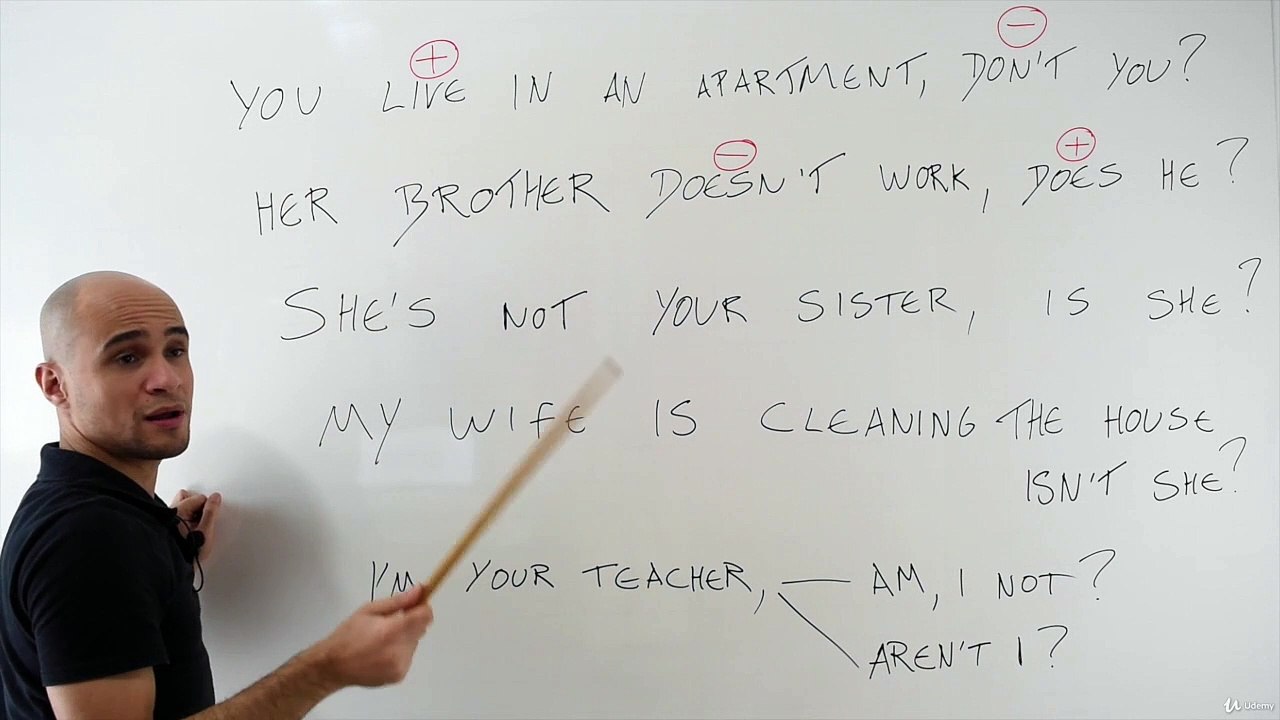 YOU LIVE IN AN APARTMENT, DON'T YOU?
HER BROTHER DOESN'T WORK, DOES HE?
SHE'S NOT YOUR SISTER, IS SHE?
MY WIFE IS CLEANING THE HOUSE
ISN'T SHE?
I'M YOUR TEACHER, AM, I NOT?
AREN'T I?
Udemy